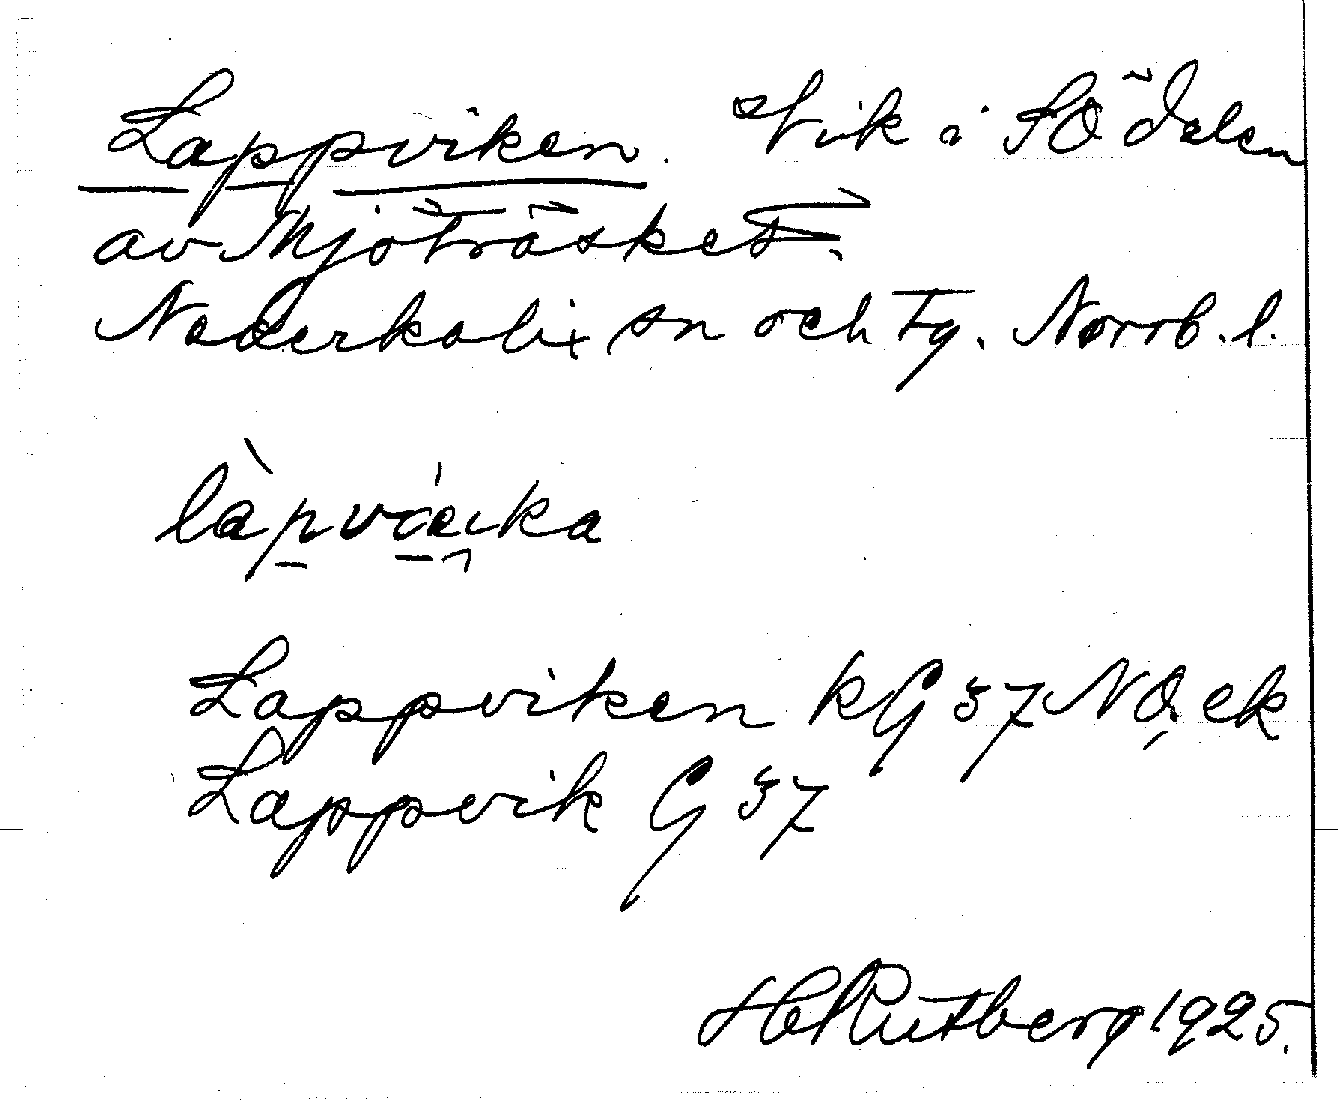 Lappviken. Vik i SÖ delen
av Mjöträsket.
Nederkalix sn och tg. Norrb. l.
Lappviken kG 37 NO, ek
Lappvik G 37
H Rutberg 1925.